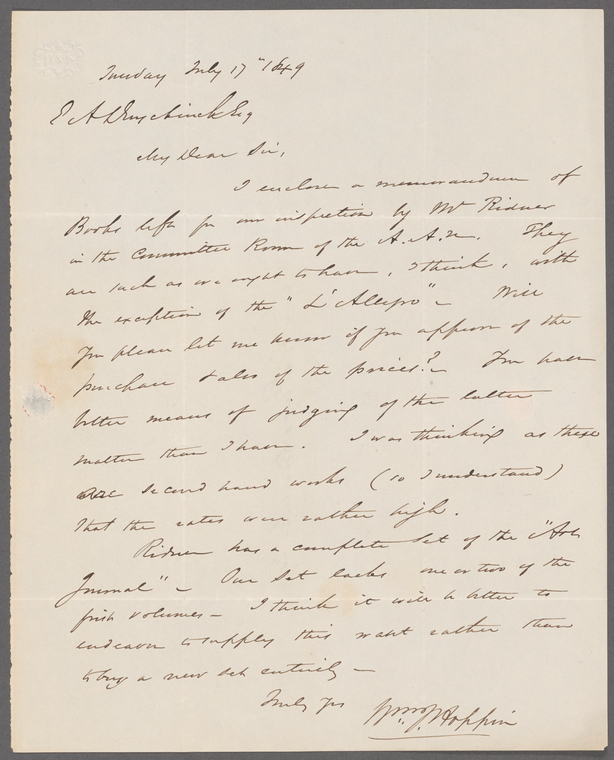 Tuesday July 17th 1849
E A Duyckinck Esq
My Dear Sir,
I enclose a memorandum of
Books left for our inspection by Mr Ridner
in the Committee Room of the A. A. U. They
are such as we ought to have, I think, with
the exception of the "L'Allegro" – Will
you please let me know if you approve of the
purchase & also of the prices? – You have
better means of judging of the latter
matter than I have. I was thinking as these
are second hand works (so I understand)
that the rates were rather high.
Ridner has a complete set of the "Art
Journal" – Our set lacks one or two of the
first volumes – I think it will be better to
endeavor to supply this want rather than
to buy a new set entirely –
Truly yrs
Wm. J. Hoppin